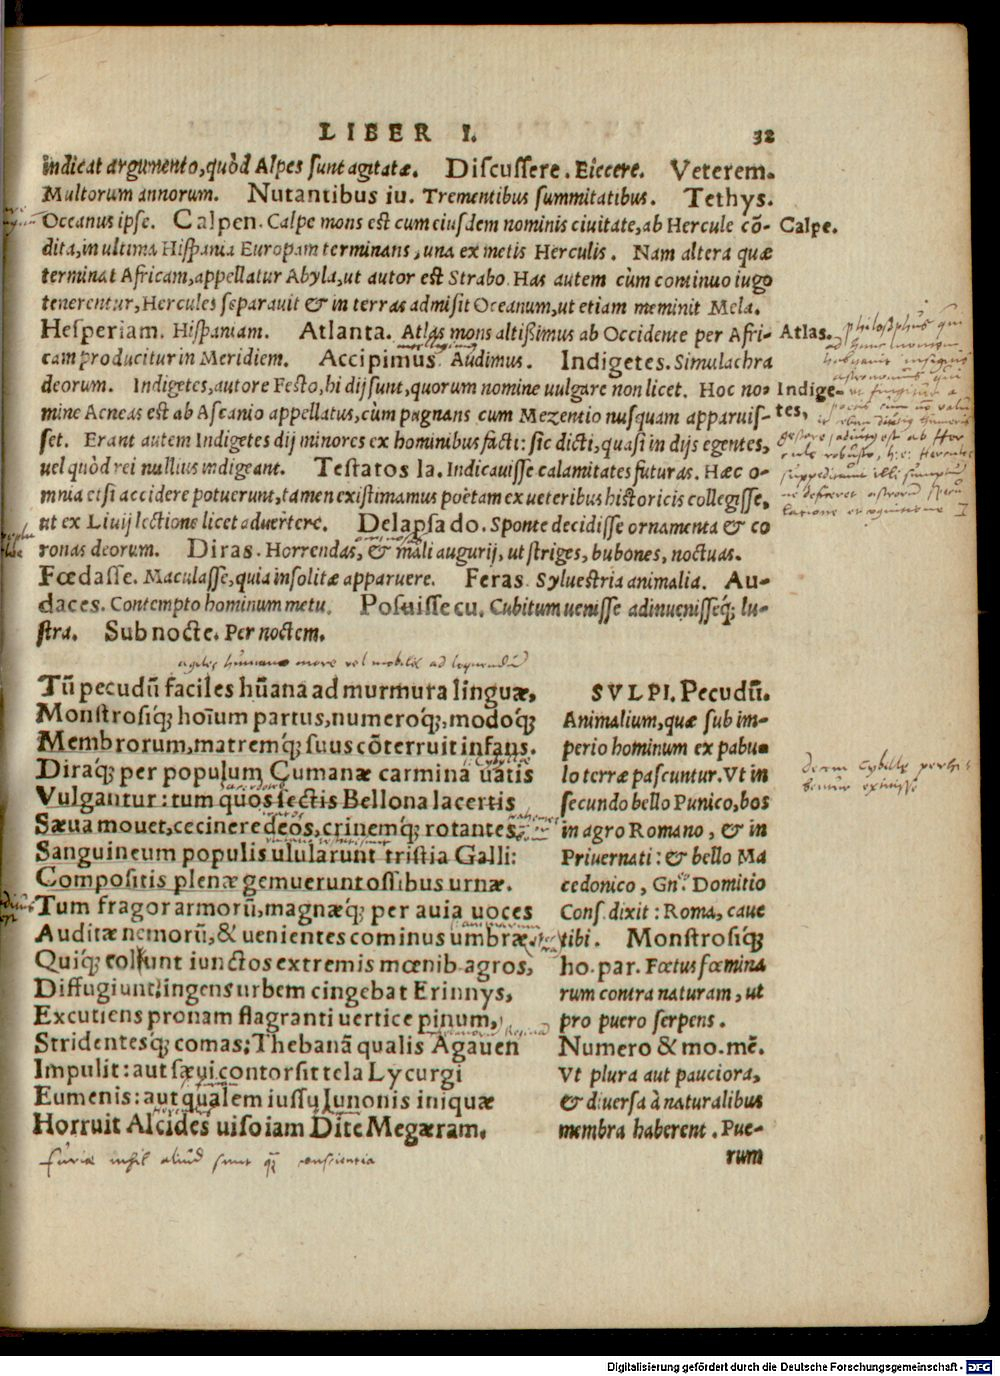 LIBER I. 32
indicat argumento, quòd Alpes sunt agitatæ. Discussere. Eiecere. Veterem.
Multorum annorum. Nutantibus iu. Trementibus summitatibus. Tethys.
Oceanus ipse. Calpen. Calpe mons est cum eiusdem nominis ciuitate, ab Hercule cō-
Calpe.
dita, in ultima Hispania Europam terminans, una ex metis Herculis. Nam altera quæ
terminat Africam, appellatur Abyla, ut autor est Strabo. Has autem cùm continuo iugo
tenerentur, Hercules separauit & in terras admisit Oceanum, ut etiam meminit Mela.
Hesperiam. Hispaniam. Atlanta. Atlas mons altißimus ab Occidente per Afri-
Atlas.
cam producitur in Meridiem. Accipimus. Audimus. Indigetes. Simulachra
deorum. Indigetes, autore Festo, hi dij sunt, quorum nomine uulgare non licet. Hoc no-
Indige-
mine Aeneas est ab Ascanio appellatus, cùm pugnans cum Mezentio nusquam apparuis-
tes,
set. Erant autem Indigetes dij minores ex hominibus facti: sic dicti, quasi in dijs egentes,
uel quòd rei nullius indigeant. Testatos la. Indicauisse calamitates futuras. Hæc o-
mnia etsi accidere potuerunt, tamen existimamus poëtam ex ueteribus historicis collegisse,
ut ex Liuij lectione licet aduertere. Delapsa do. Sponte decidisse ornamenta & co
ronas deorum. Diras. Horrendas, & mali augurij, ut striges, bubones, noctuas.
Fœdasse. Maculasse, quia insolitæ apparuere. Feras. Syluestria animalia. Au-
daces. Contempto hominum metu. Posuisse cu. Cubitum uenisse adinuenisseq́; lu-
stra. Sub nocte. Per noctem.
Tū pecudū faciles hūana ad murmura linguæ,
Monstrosiq́; hoīum partus, numeroq́;, modoq́;
Membrorum, matremq́; suus cōterruit infans.
Diraq́; per populum Cumanæ carmina uatis
Vulgantur: tum quos sectis Bellona lacertis
Sæua mouet, cecinere deos, crinemq́; rotantes
Sanguineum populis ulularunt tristia Galli:
Compositis plenæ gemuerunt ossibus urnæ.
Tum fragor armorū, magnæq́; per auia uoces
Auditæ nemorū, & uenientes cominus umbræ.
Quiq́; colunt iunctos extremis mœnib. agros,
Diffugiunt: ingens urbem cingebat Erinnys,
Excutiens pronam flagranti uertice pinum,
Stridentesq́; comas; Thebanā qualis Agauen
Impulit: aut sæui contorsit tela Lycurgi
Eumenis: aut qualem iussu Iunonis iniquæ
Horruit Alcides uiso iam Dite Megæram.
SVLPI. Pecudū.
Animalium, quæ sub im-
perio hominum ex pabu-
lo terræ pascuntur. Vt in
secundo bello Punico, bos
in agro Romano, & in
Priuernati: & bello Ma
cedonico, Gn. Domitio
Cons. dixit: Roma, caue
tibi. Monstrosiq́;
ho. par. Fœtus fœmina
rum contra naturam, ut
pro puero serpens.
Numero & mo. mē.
Vt plura aut pauciora,
& diuersa à naturalibus
membra haberent. Pue-
rum
furiæ nihil aliud sunt conscientia
Digitalisierung gefördert durch die Deutsche Forschungsgemeinschaft - DFG